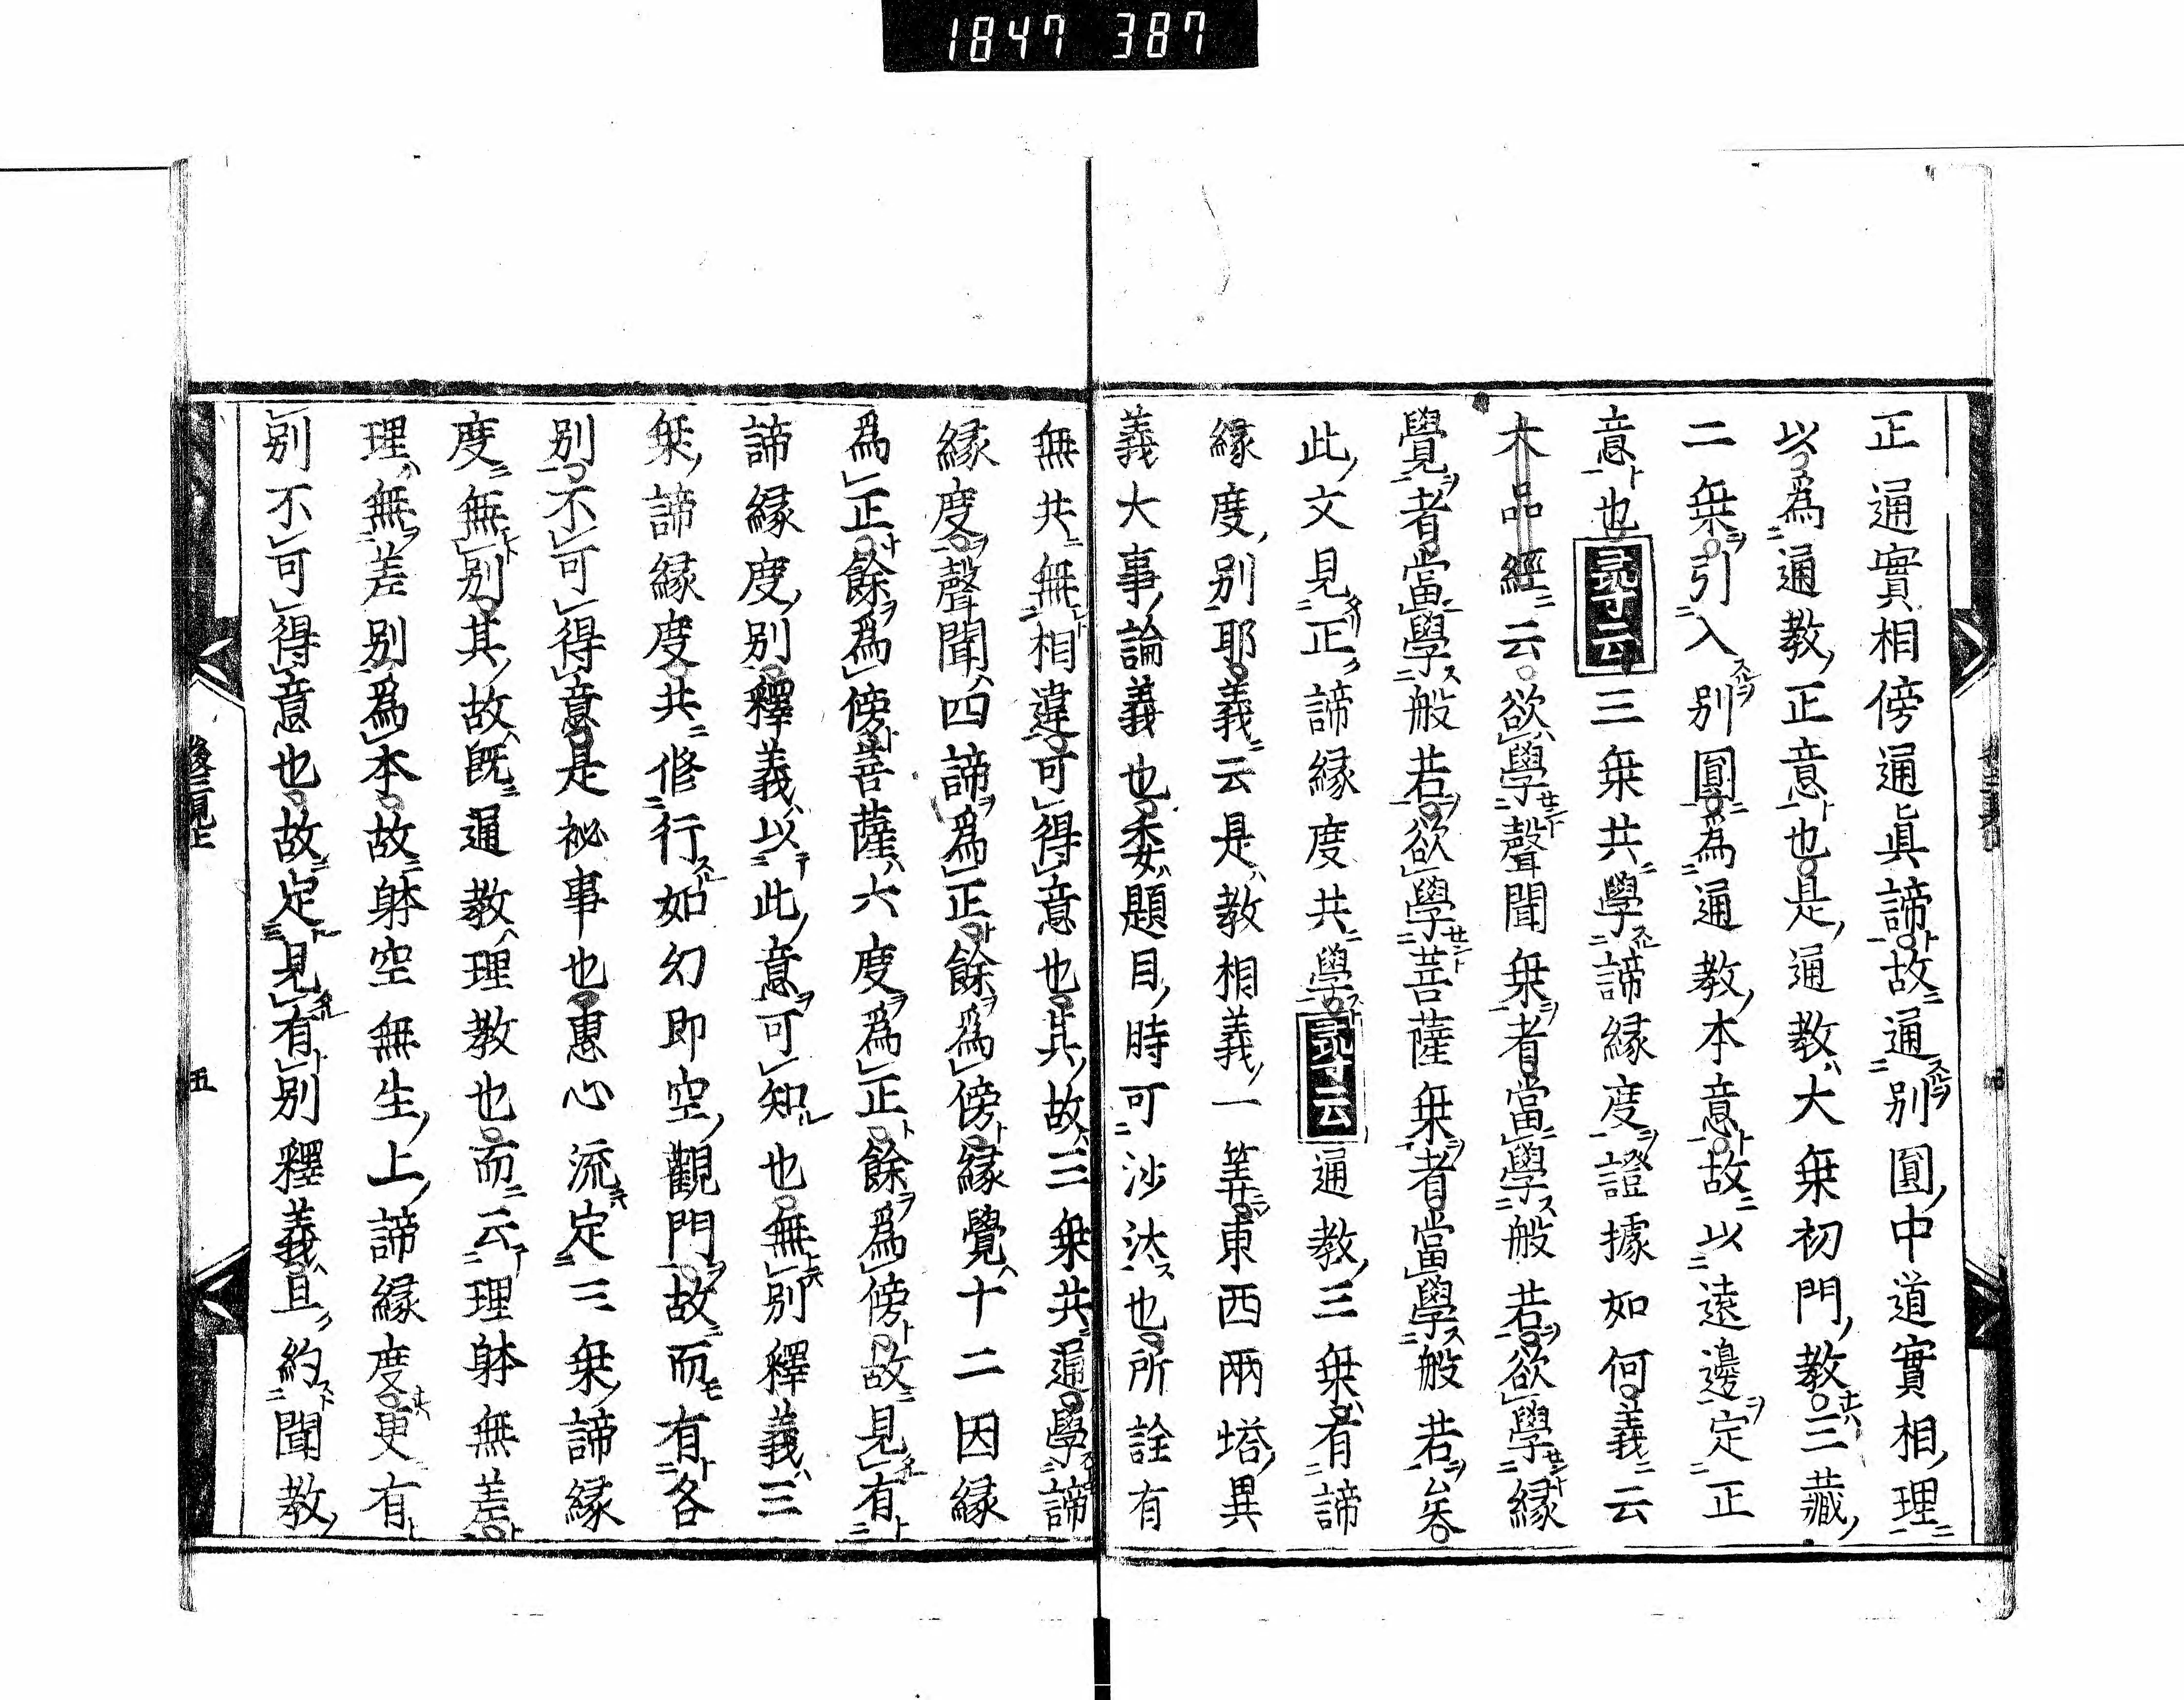 1847 387
正通實相傍通眞諦故通別圓中道實相理
以爲通教正意也是通教大乗初門教三藏
二乗引入別圓爲通教本意故以遠邊定正
意也尋云三乗共學諦縁度證據如何義云
大品經云欲學聲聞乗者當學般若欲學縁
覺者當學般若欲學菩薩乗者當學般若矣
此文見正諦縁度共學尋云通教三乗有諦
縁度別耶義云是教相義一筭東西兩塔異
義大事論義也委題目時可沙汰也所詮有
無共無相違可得意也其故三乗共通學諦
縁度聲聞四諦爲正餘爲傍縁覺十二因縁
爲正餘爲傍菩薩六度爲正餘爲傍故見有
諦縁度別釋義以此意可知也無別釋義三
乗諦縁度共修行如幻即空觀門故而有各
別不可得意是祕事也惠心流定三乗諦縁
度無別其故既通教理教也而云理躰無差
理無差別爲本故躰空無生上諦縁度更有
別不可得意也故定見有別釋義且約聞教
五